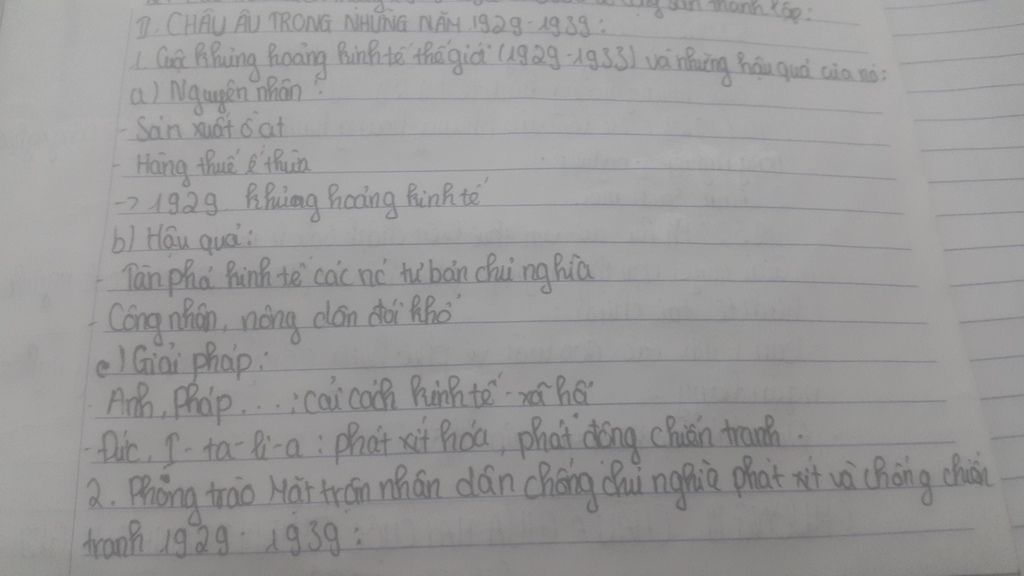 sản thành lập:
II. CHÂU ÂU TRONG NHỮNG NĂM 1929-1939:
1. Cuộc khủng hoảng kinh tế thế giới (1929-1933) và những hậu quả của nó:
a) Nguyên nhân:
- Sản xuất ồ ạt
- Hàng thuế ế thừa
-> 1929 khủng hoảng kinh tế
b) Hậu quả:
- Tàn phá kinh tế các nc tư bản chủ nghĩa
- Công nhân, nông dân đói khổ
c) Giải pháp:
- Anh, Pháp...: cải cách kinh tế - xã hội
- Đức, I-ta-li-a: phát xít hóa, phát động chiến tranh.
2. Phong trào Mặt trận nhân dân chống chủ nghĩa phát xít và chống chiến
tranh 1929-1939: